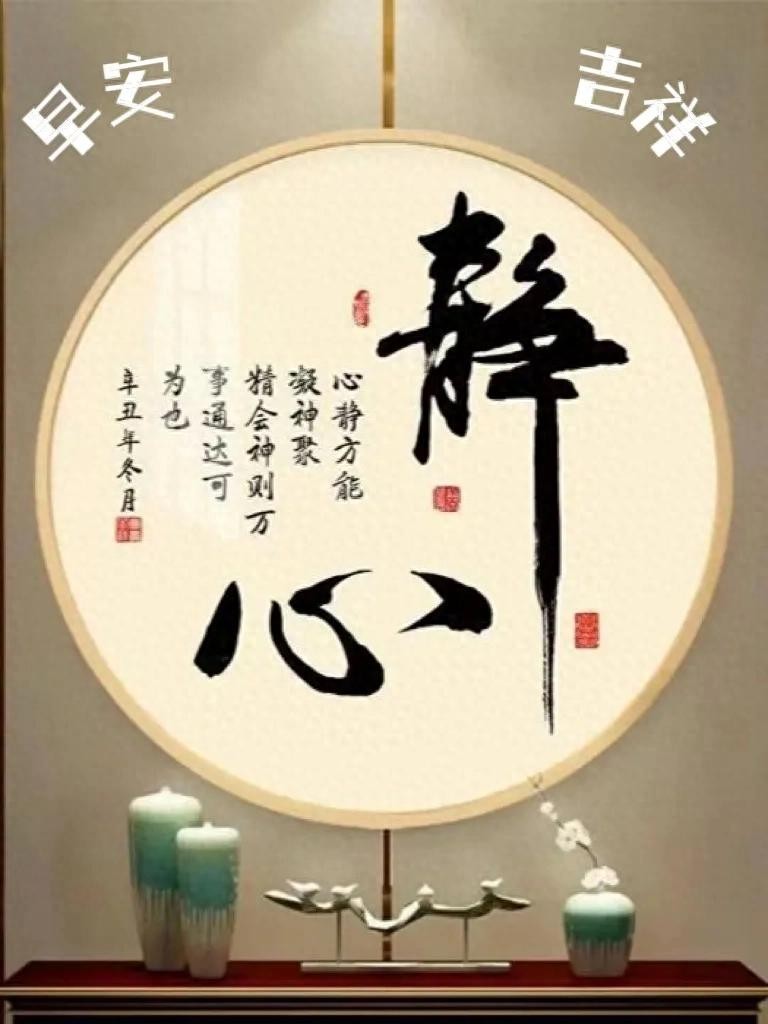 早安
吉祥
靜
心
心静方能
凝神聚
精会神则万
事通达可
为也
辛丑年冬月